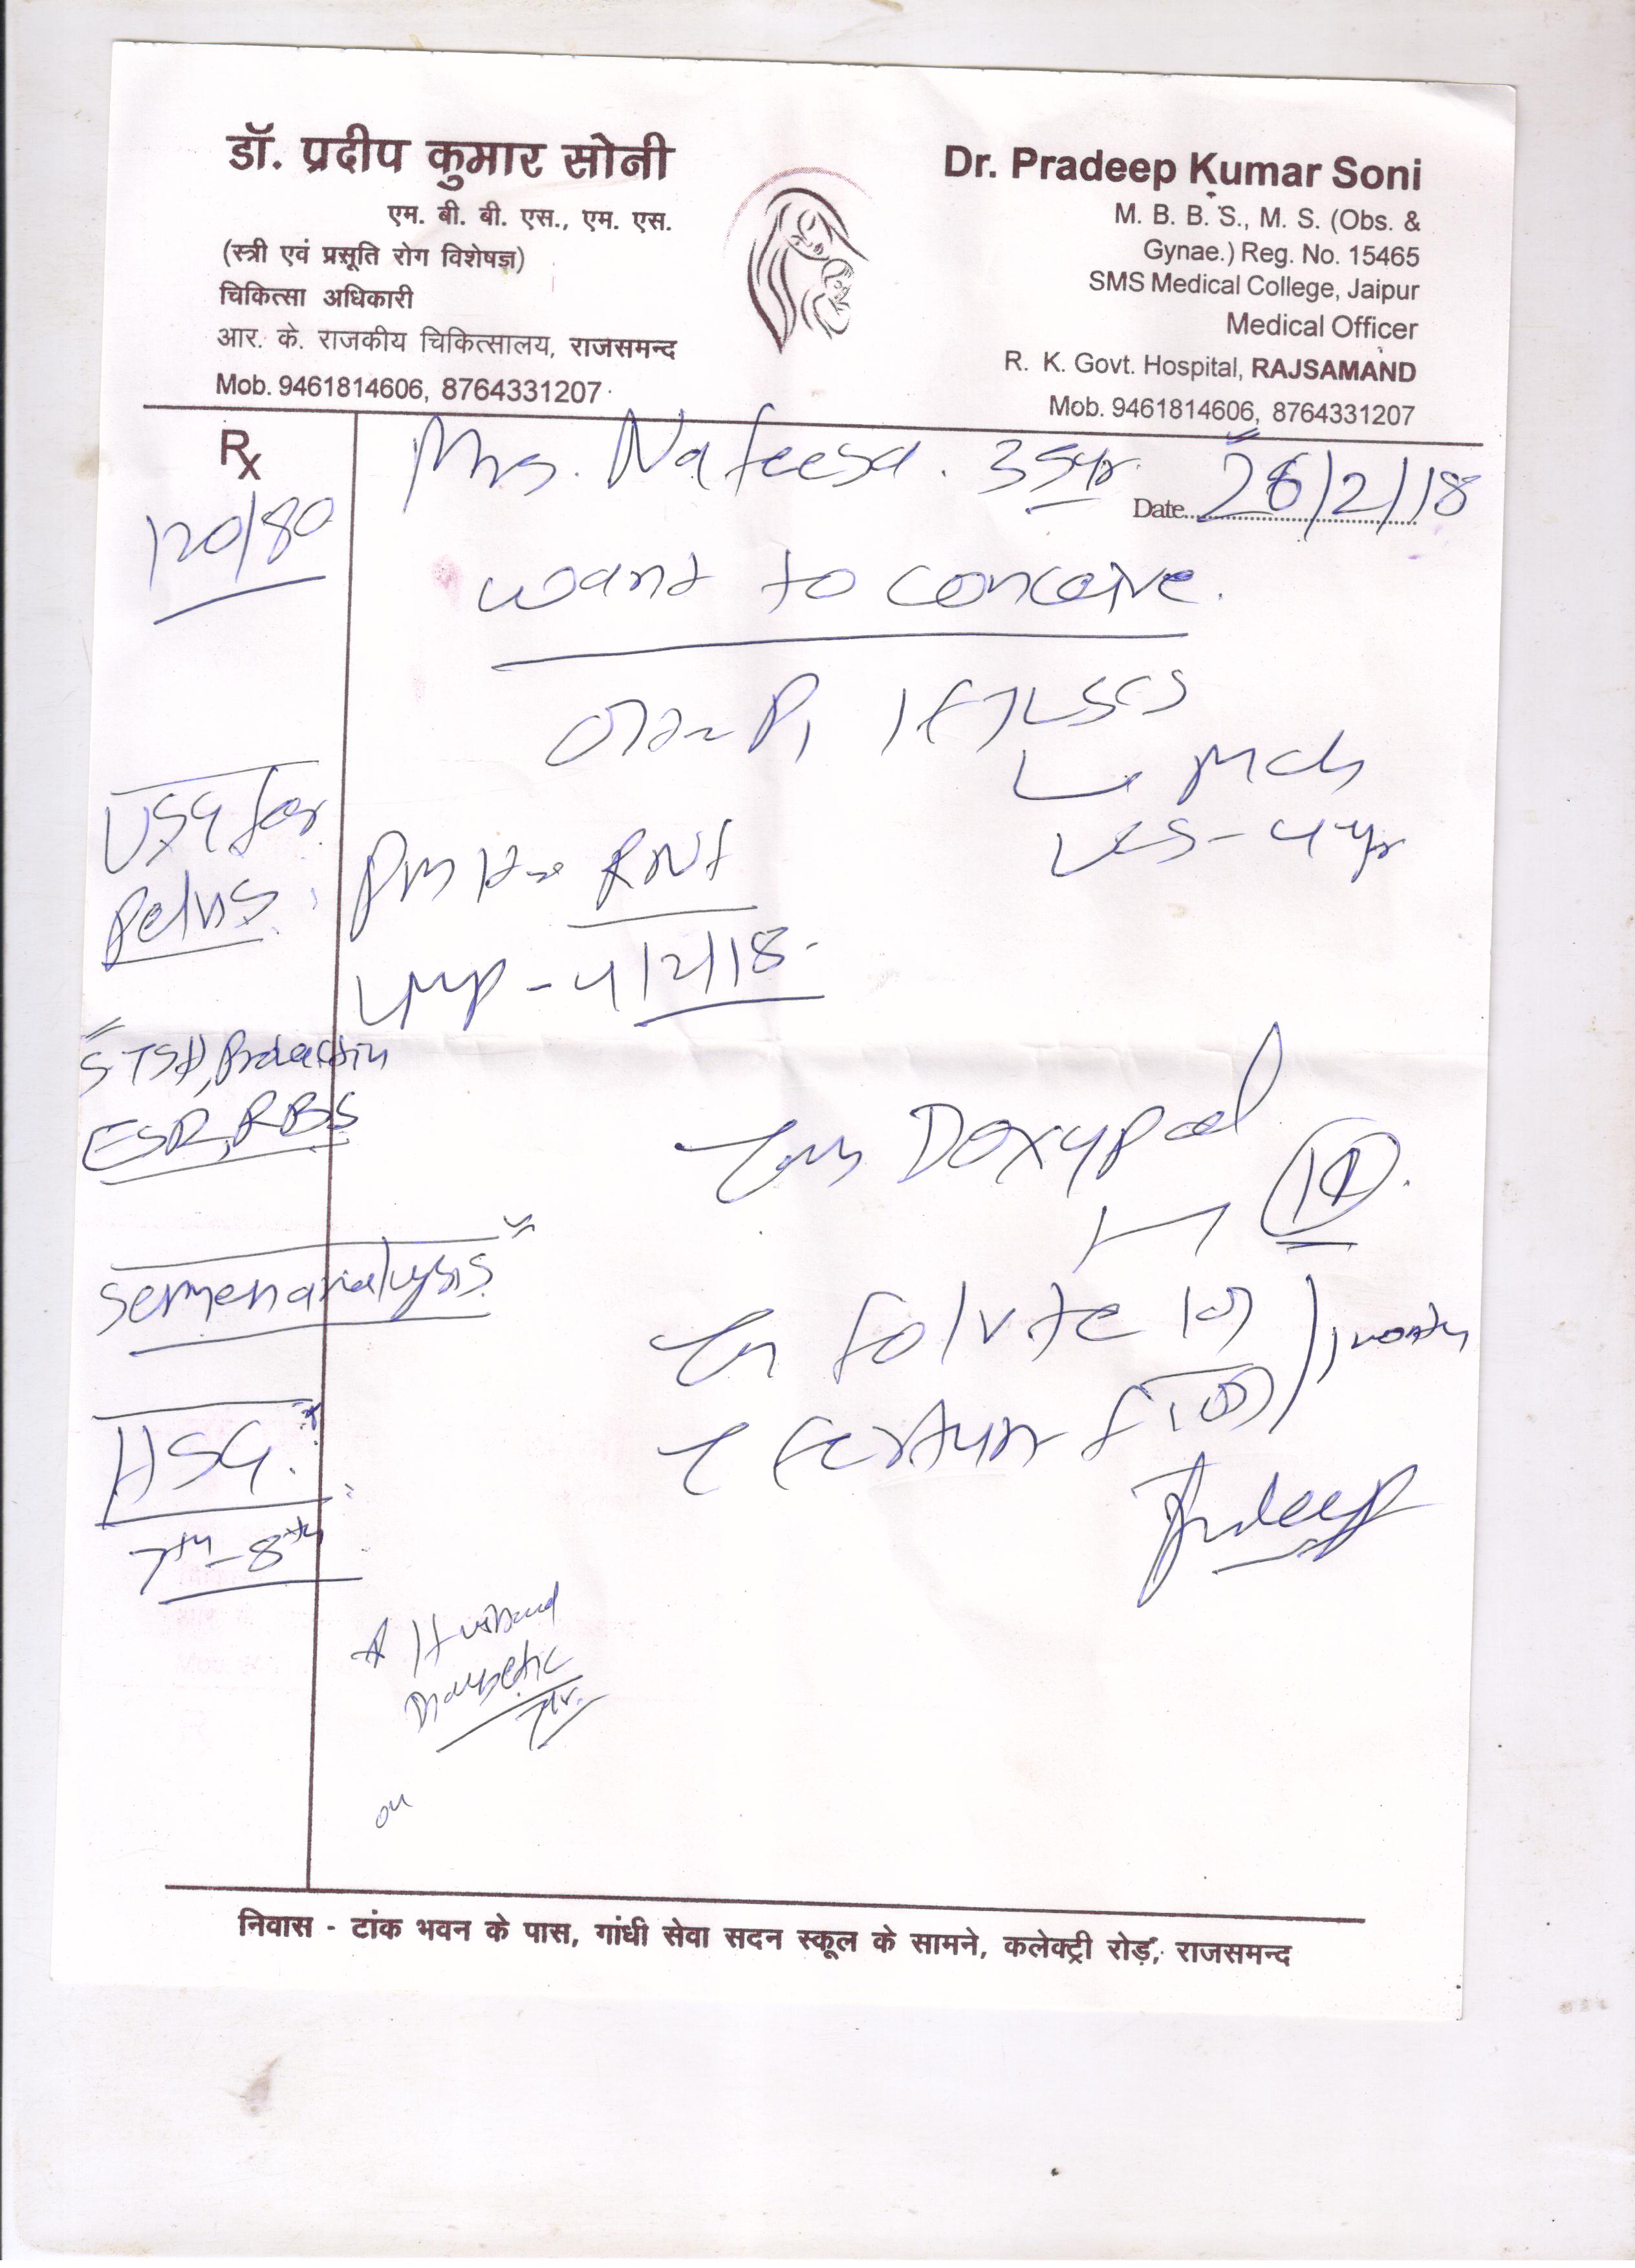 डॉ. प्रदीप कुमार सोनी
एम. बी. बी. एस., एम. एस.
(स्त्री एवं प्रसूति रोग विशेषज्ञ)
चिकित्सा अधिकारी
आर. के. राजकीय चिकित्सालय, राजसमन्द
Mob. 9461814606, 8764331207
Dr. Pradeep Kumar Soni
M. B. B. S., M. S. (Obs. &
Gynae.) Reg. No. 15465
SMS Medical College, Jaipur
Medical Officer
R. K. Govt. Hospital, RAJSAMAND
Mob. 9461814606, 8764331207
Rx
Mrs. Nafeesa. 35yr
Date 26/2/18
120/80
want to conceive.
P1 LSCS
4yr
USG for
Pelvis
LMP - 4/2/18
S TSH, Prolactin
ESR, RBS
Semen analysis
HSG
7th - 8th
Folvite
1 month
Pradeep
Husband
निवास - टांक भवन के पास, गांधी सेवा सदन स्कूल के सामने, कलेक्ट्री रोड़, राजसमन्द